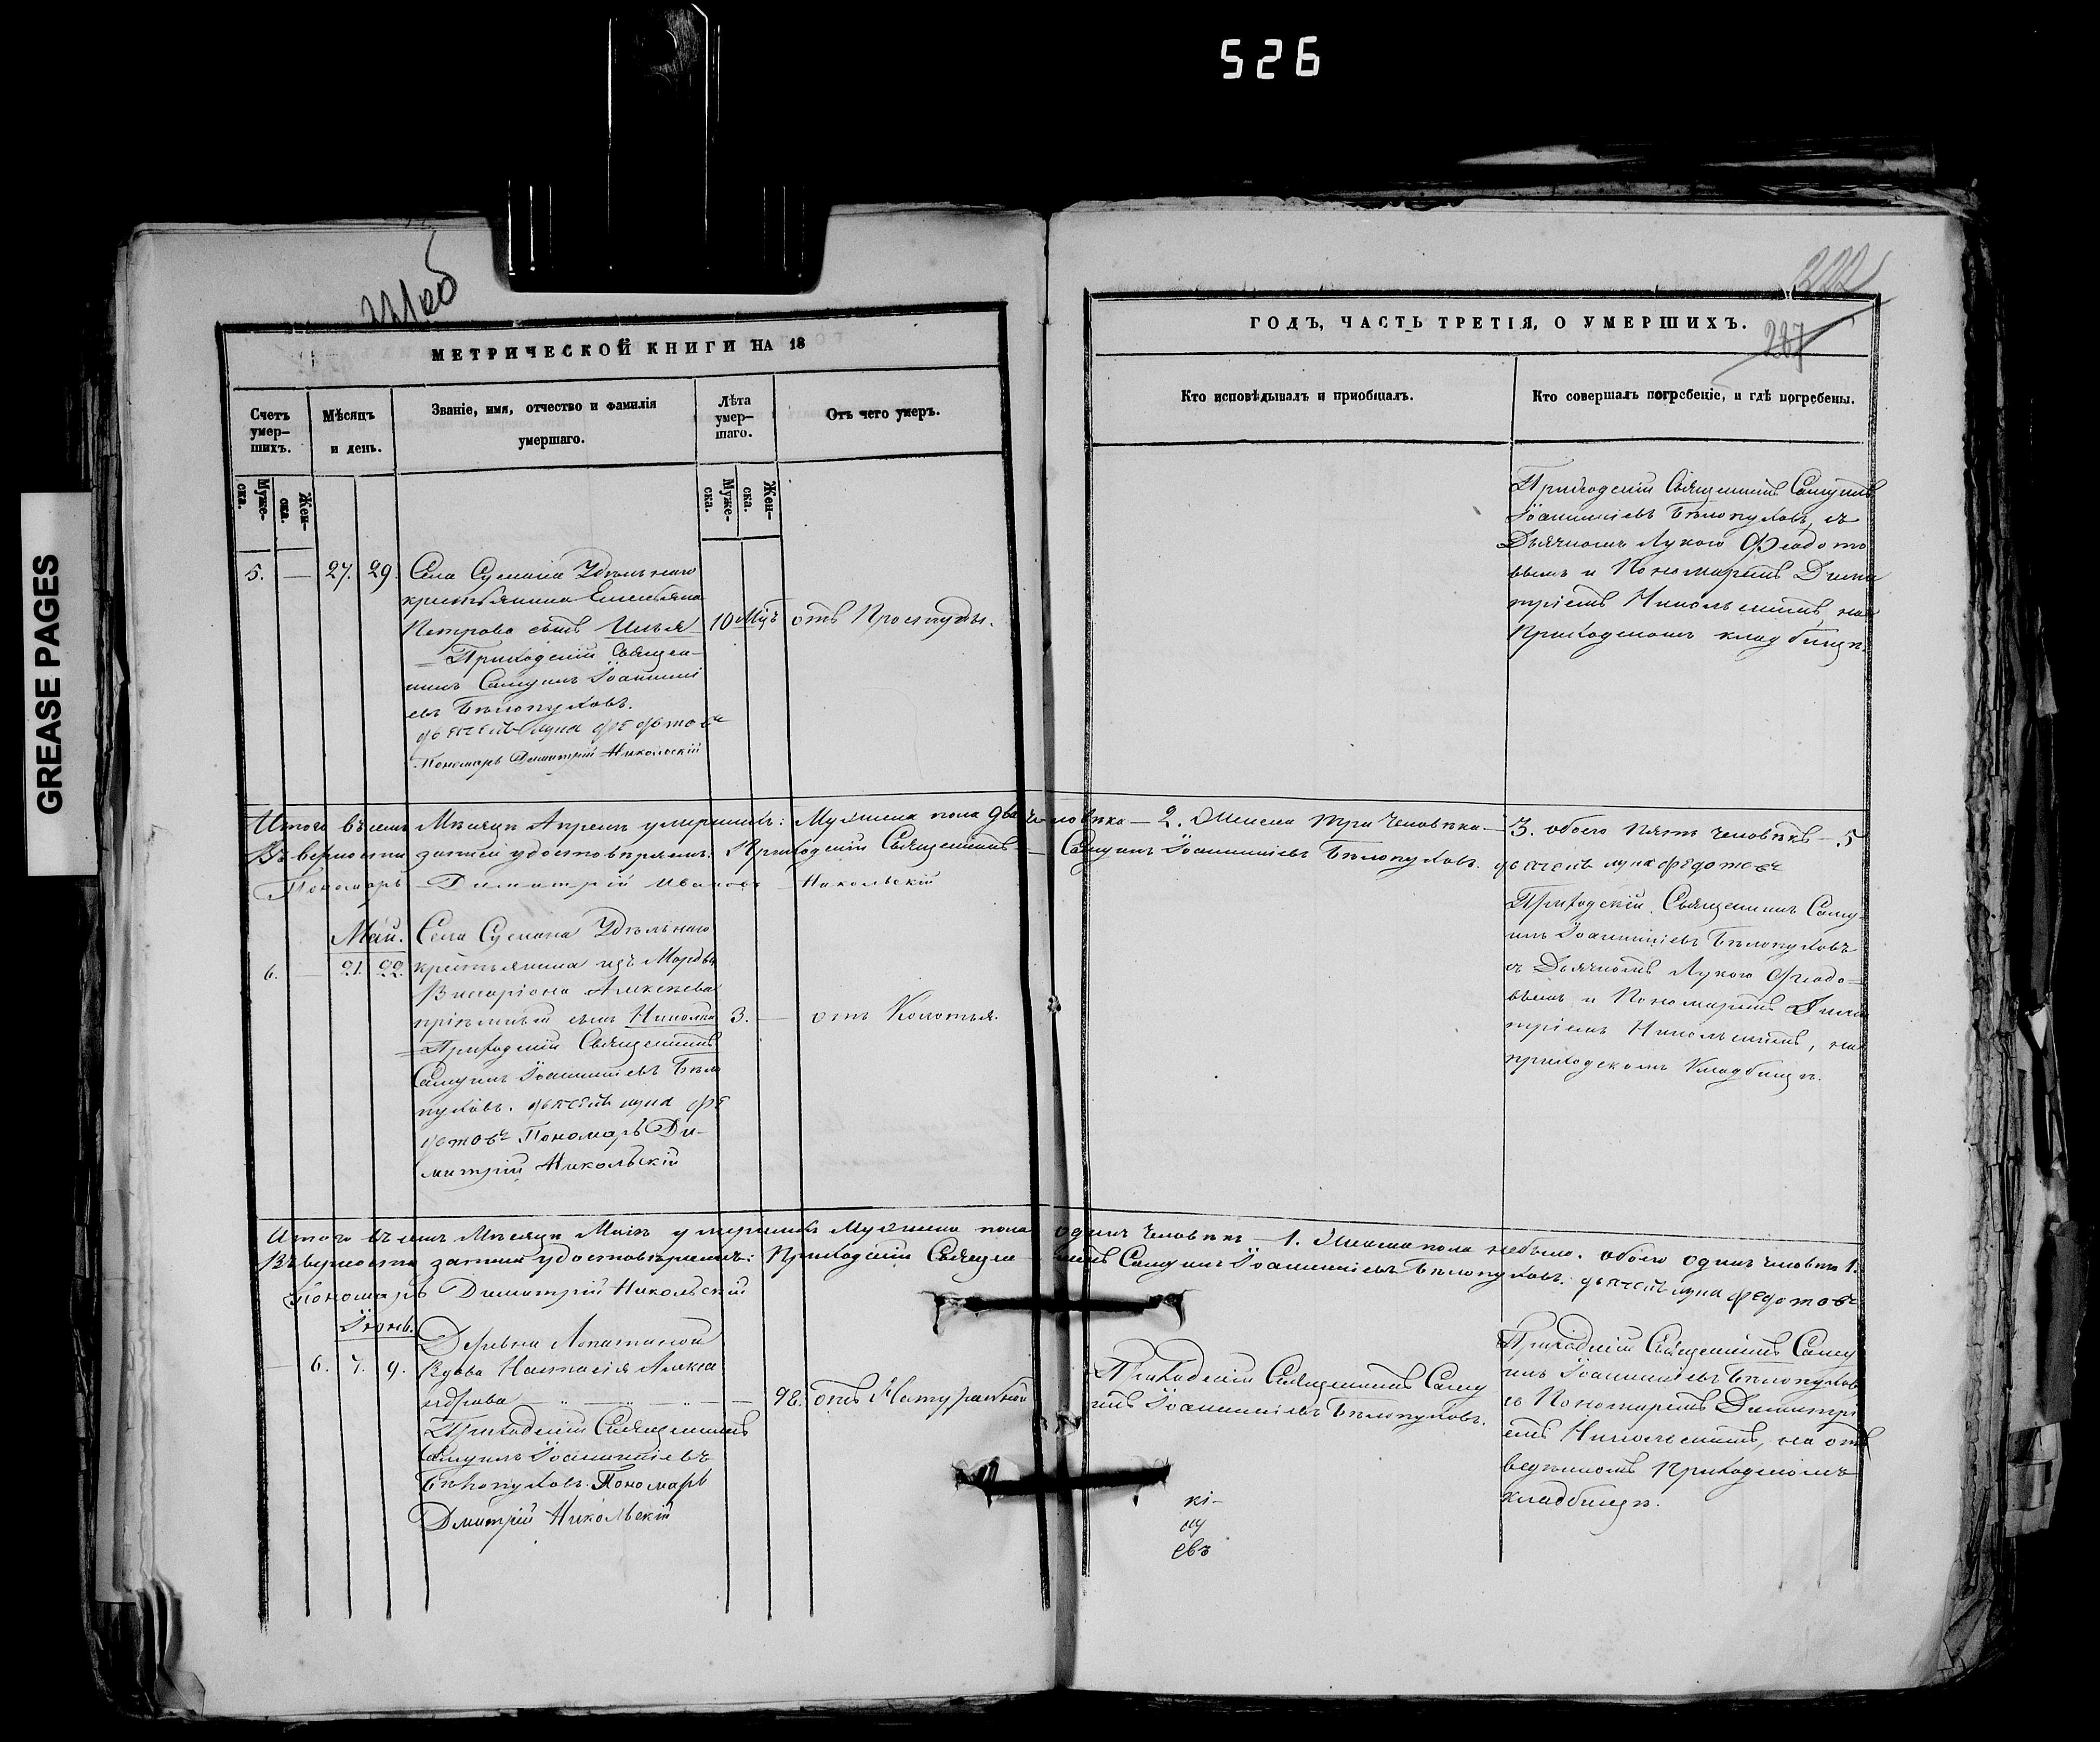 526
GREASE PAGES
221об
222
287
МЕТРИЧЕСКОЙ КНИГИ НА 18
Счетъ умер-
шихъ.
Мѣсяцъ
и день.
Званіе, имя, отчество и фамилія
умершаго.
Лѣта
умер-
шаго.
Отъ чего умеръ.
Муже-
ска.
Жен-
ска.
Муже-
ска.
Жен-
ска.
5. — 27. 29.
Села Сускана Удѣльнаго
крестьянина Емельяна
Петрова сынъ Илья
10 Мцъ
отъ Простуды.
Приходскій Священ-
никъ Самуилъ Іоанникі
евъ Бѣлопуховъ.
дьячекъ Лука Федотовъ
Пономарь Димитрій Никольскій
ГОДЪ, ЧАСТЬ ТРЕТІЯ, О УМЕРШИХЪ.
Кто исповѣдывалъ и пріобщалъ.
Кто совершалъ погребеніе, и гдѣ погребены.
Приходскій Священникъ Самуилъ
Іоанникіевъ Бѣлопуховъ, съ
Дьячкомъ Лукою Феодото
вымъ и Пономаремъ Дими
тріемъ Никольскимъ, на
Приходскомъ кладбищѣ.
Итого въ семъ Мѣсяцѣ Апрелѣ умершихъ: Мужеска пола два человѣка — 2. Женска три человѣка — 3. обоего пять человѣкъ — 5
Въ верности записи удостовѣряемъ: Приходскій Священникъ Самуилъ Іоанникіевъ Бѣлопуховъ. дьячекъ Лука Федотовъ
Пономарь Димитрій Ивановъ Никольскій
Май.
6. — 21. 22.
Села Сускана Удѣльнаго
крестьянина изъ Мордвы
Виссаріона Алексѣева
пріемный сынъ Николай
3. —
отъ Колотья.
Приходскій Священникъ
Самуилъ Іоанникіевъ Бѣло
пуховъ. дьячекъ Лука Фе
дотовъ Пономарь Ди-
митрій Никольскій
Приходскій Священникъ Саму-
илъ Іоанникіевъ Бѣлопуховъ
съ Дьячкомъ Лукою Феодо-
вымъ и Пономаремъ Дими
тріемъ Никольскимъ, на
приходскомъ Кладбищѣ.
Итого въ семъ Мѣсяцѣ Маіѣ умершихъ Мужеска пола одинъ человѣкъ — 1. Женска пола небыло. обоего одинъ человѣкъ 1.
Въ верности записи удостовѣряемъ: Приходскій Священникъ Самуилъ Іоанникіевъ Бѣлопуховъ. дьячекъ Лука Федотовъ
Пономарь Димитрій Никольскій
Іюнь.
— 6. 7. 9.
Деревни Лопатиной
Вдова Настасія Алекса
ндрова
98.
отъ Натуральной
Приходскій Священникъ
Самуилъ Іоанникіевъ
Бѣлопуховъ. Пономарь
Дмитрій Никольскій
Приходскій Священникъ Саму
илъ Іоанникіевъ Бѣлопуховъ.
Приходскій Священникъ Саму
илъ Іоанникіевъ Бѣлопуховъ
съ Пономаремъ Димитрі
емъ Никольскимъ, на отв
веденномъ Приходскомъ
кладбищѣ.
кі-
му
евъ